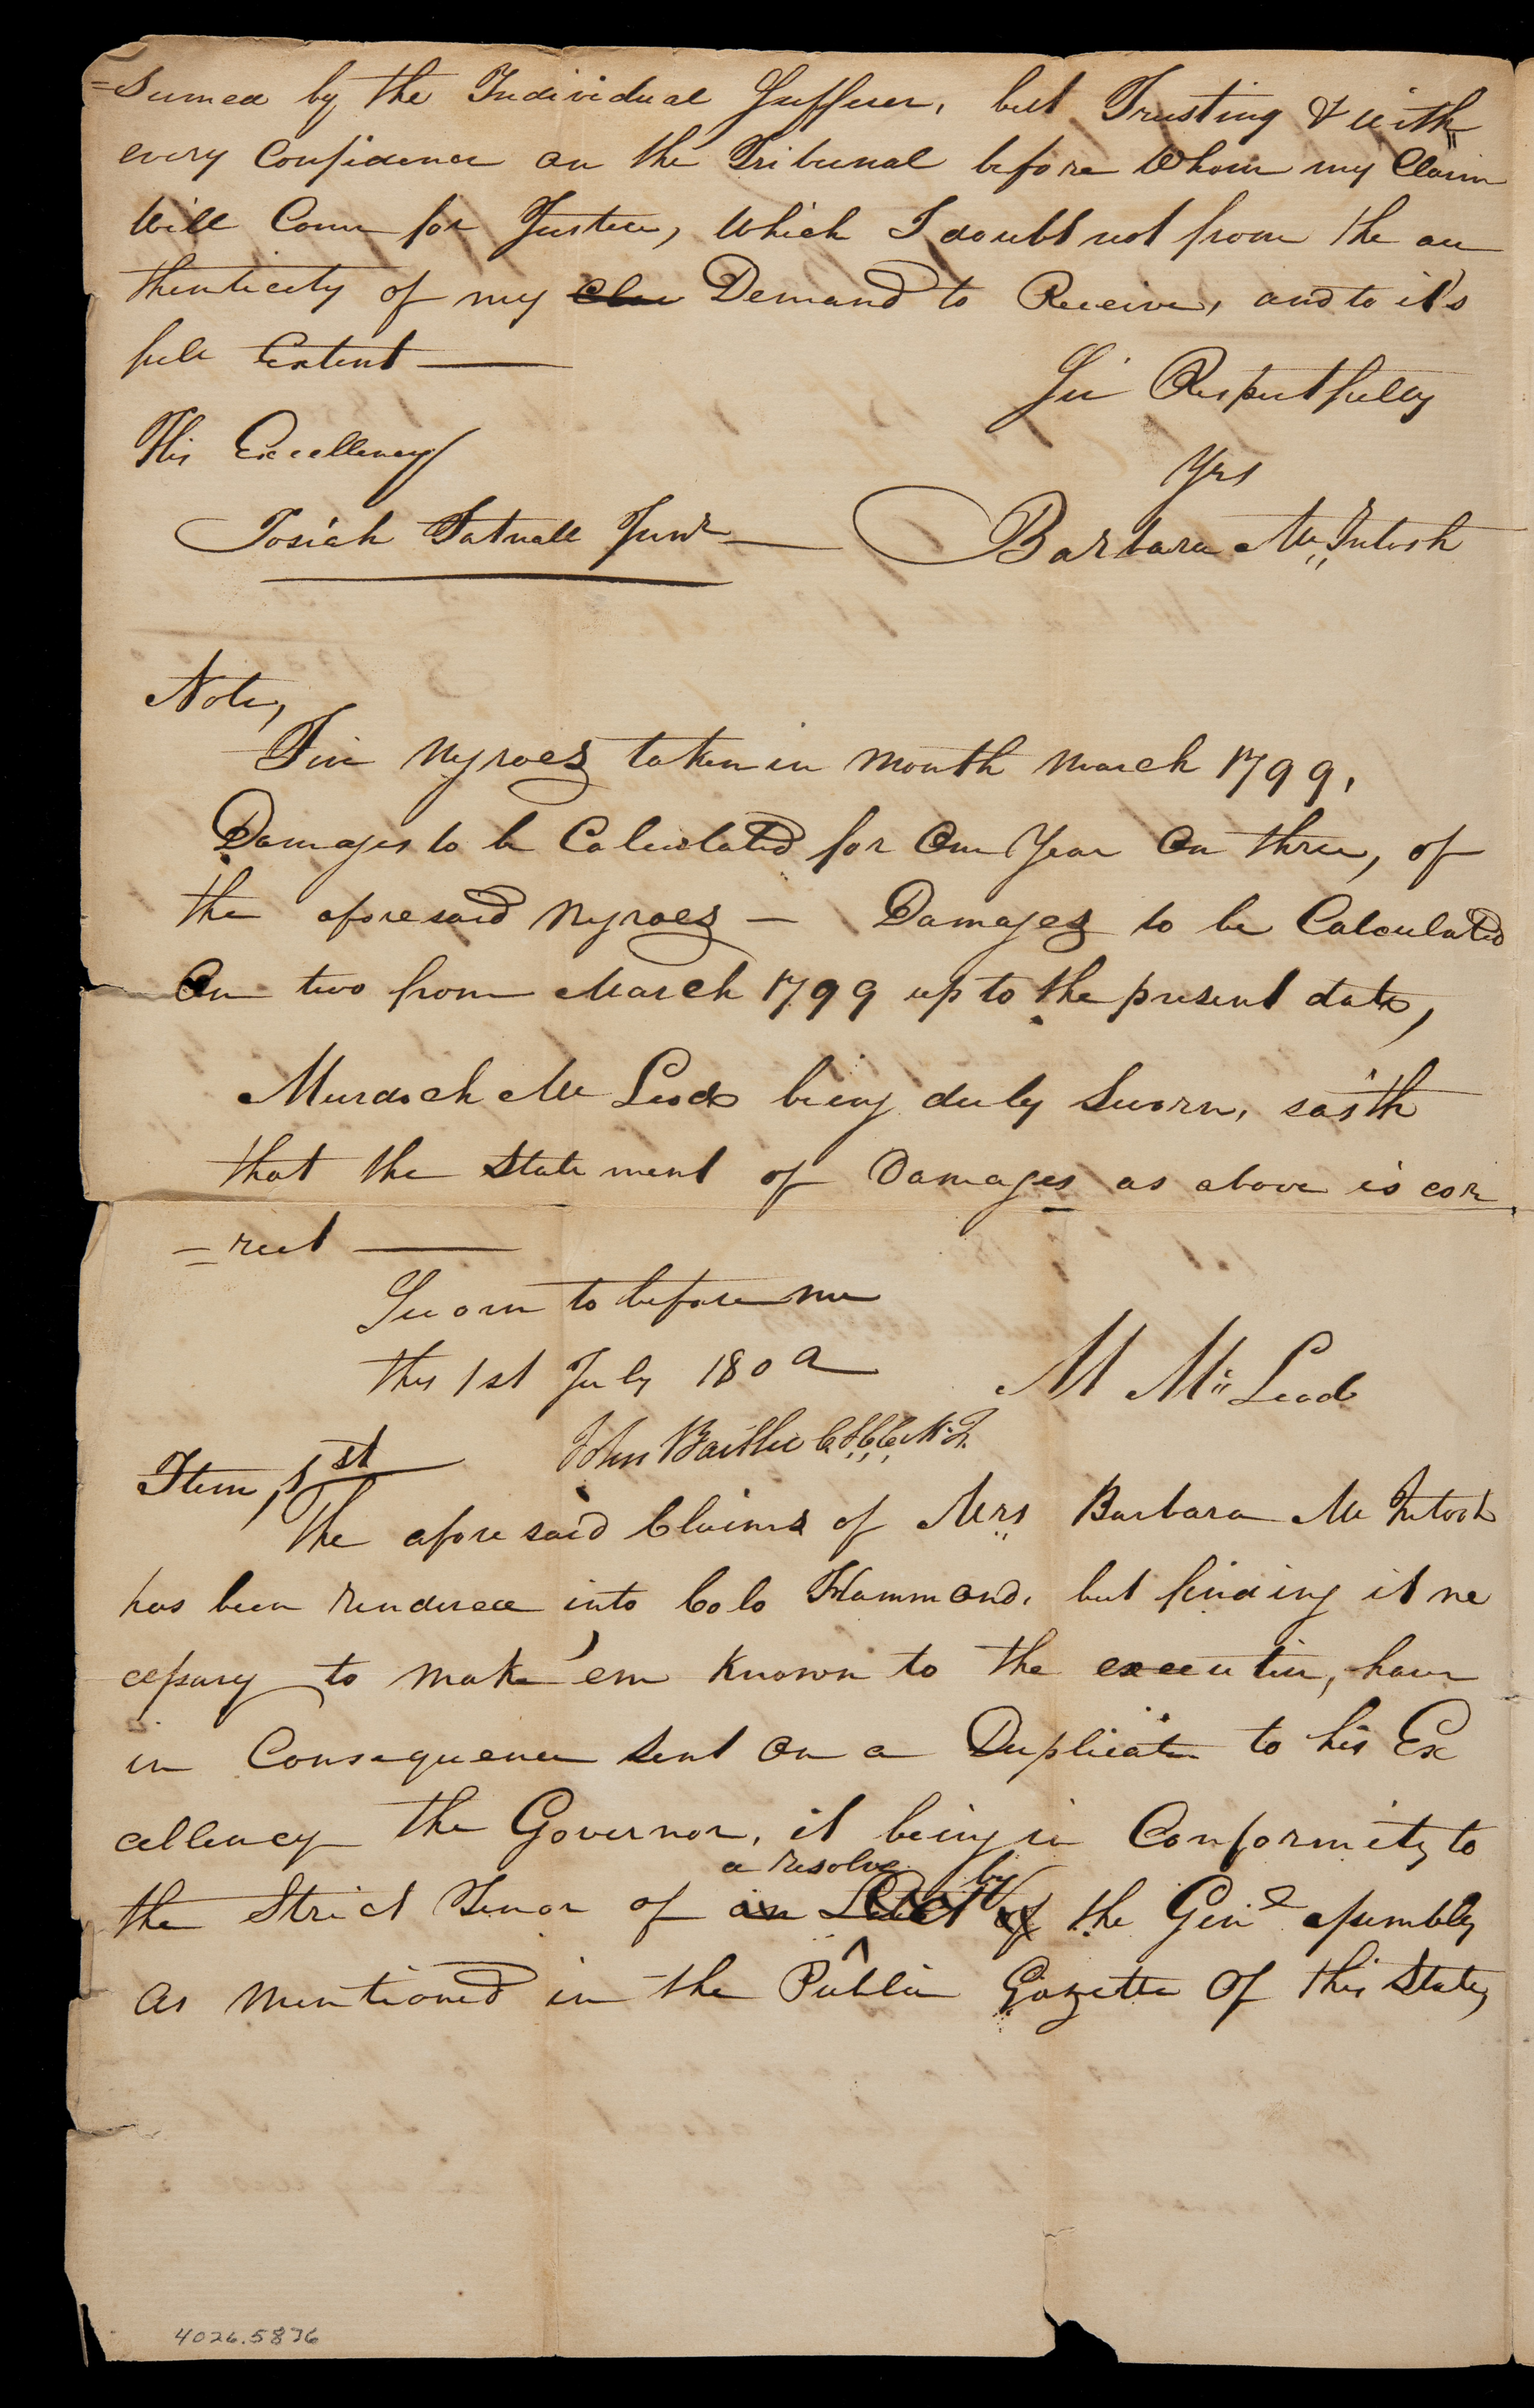 =sumed by the Individual Sufferer, but Trusting & with
every Confidence on the Tribunal before Whom my Claim
Will Come for Justice, Which I doubt not from the au
thenticity of my Clai Demand to Receive, and to it's
full Extent —
Sir Respectfully
His Excellency
Yrs
Josiah Tatnall Junr — Barbara McIntosh
Note,
Five Negroes taken in month March 1799,
Damages to be Calculated for One Year On three, of
the aforesaid Negroes — Damages to be Calculated
On two from March 1799 up to the present date,
Murdoch McLeod being duly Sworn, saith
that the Statement of Damages as above is cor
=rect —
Sworn to before me
this 1st July 1802
M McLeod
John Baillie
Item, 1st
The aforesaid Claims of Mrs Barbara McIntosh
has been rendered into Colo Hammond, but finding it ne
cessary to make 'em Known to the executive, have
in Consequence Sent on a Duplicate to his Ex
cellency the Governor, it being in Conformity to
a resolve by
the Strict Tenor of an Act of the Genl assembly
as mentioned in the Public Gazette Of this State,
4026.5836